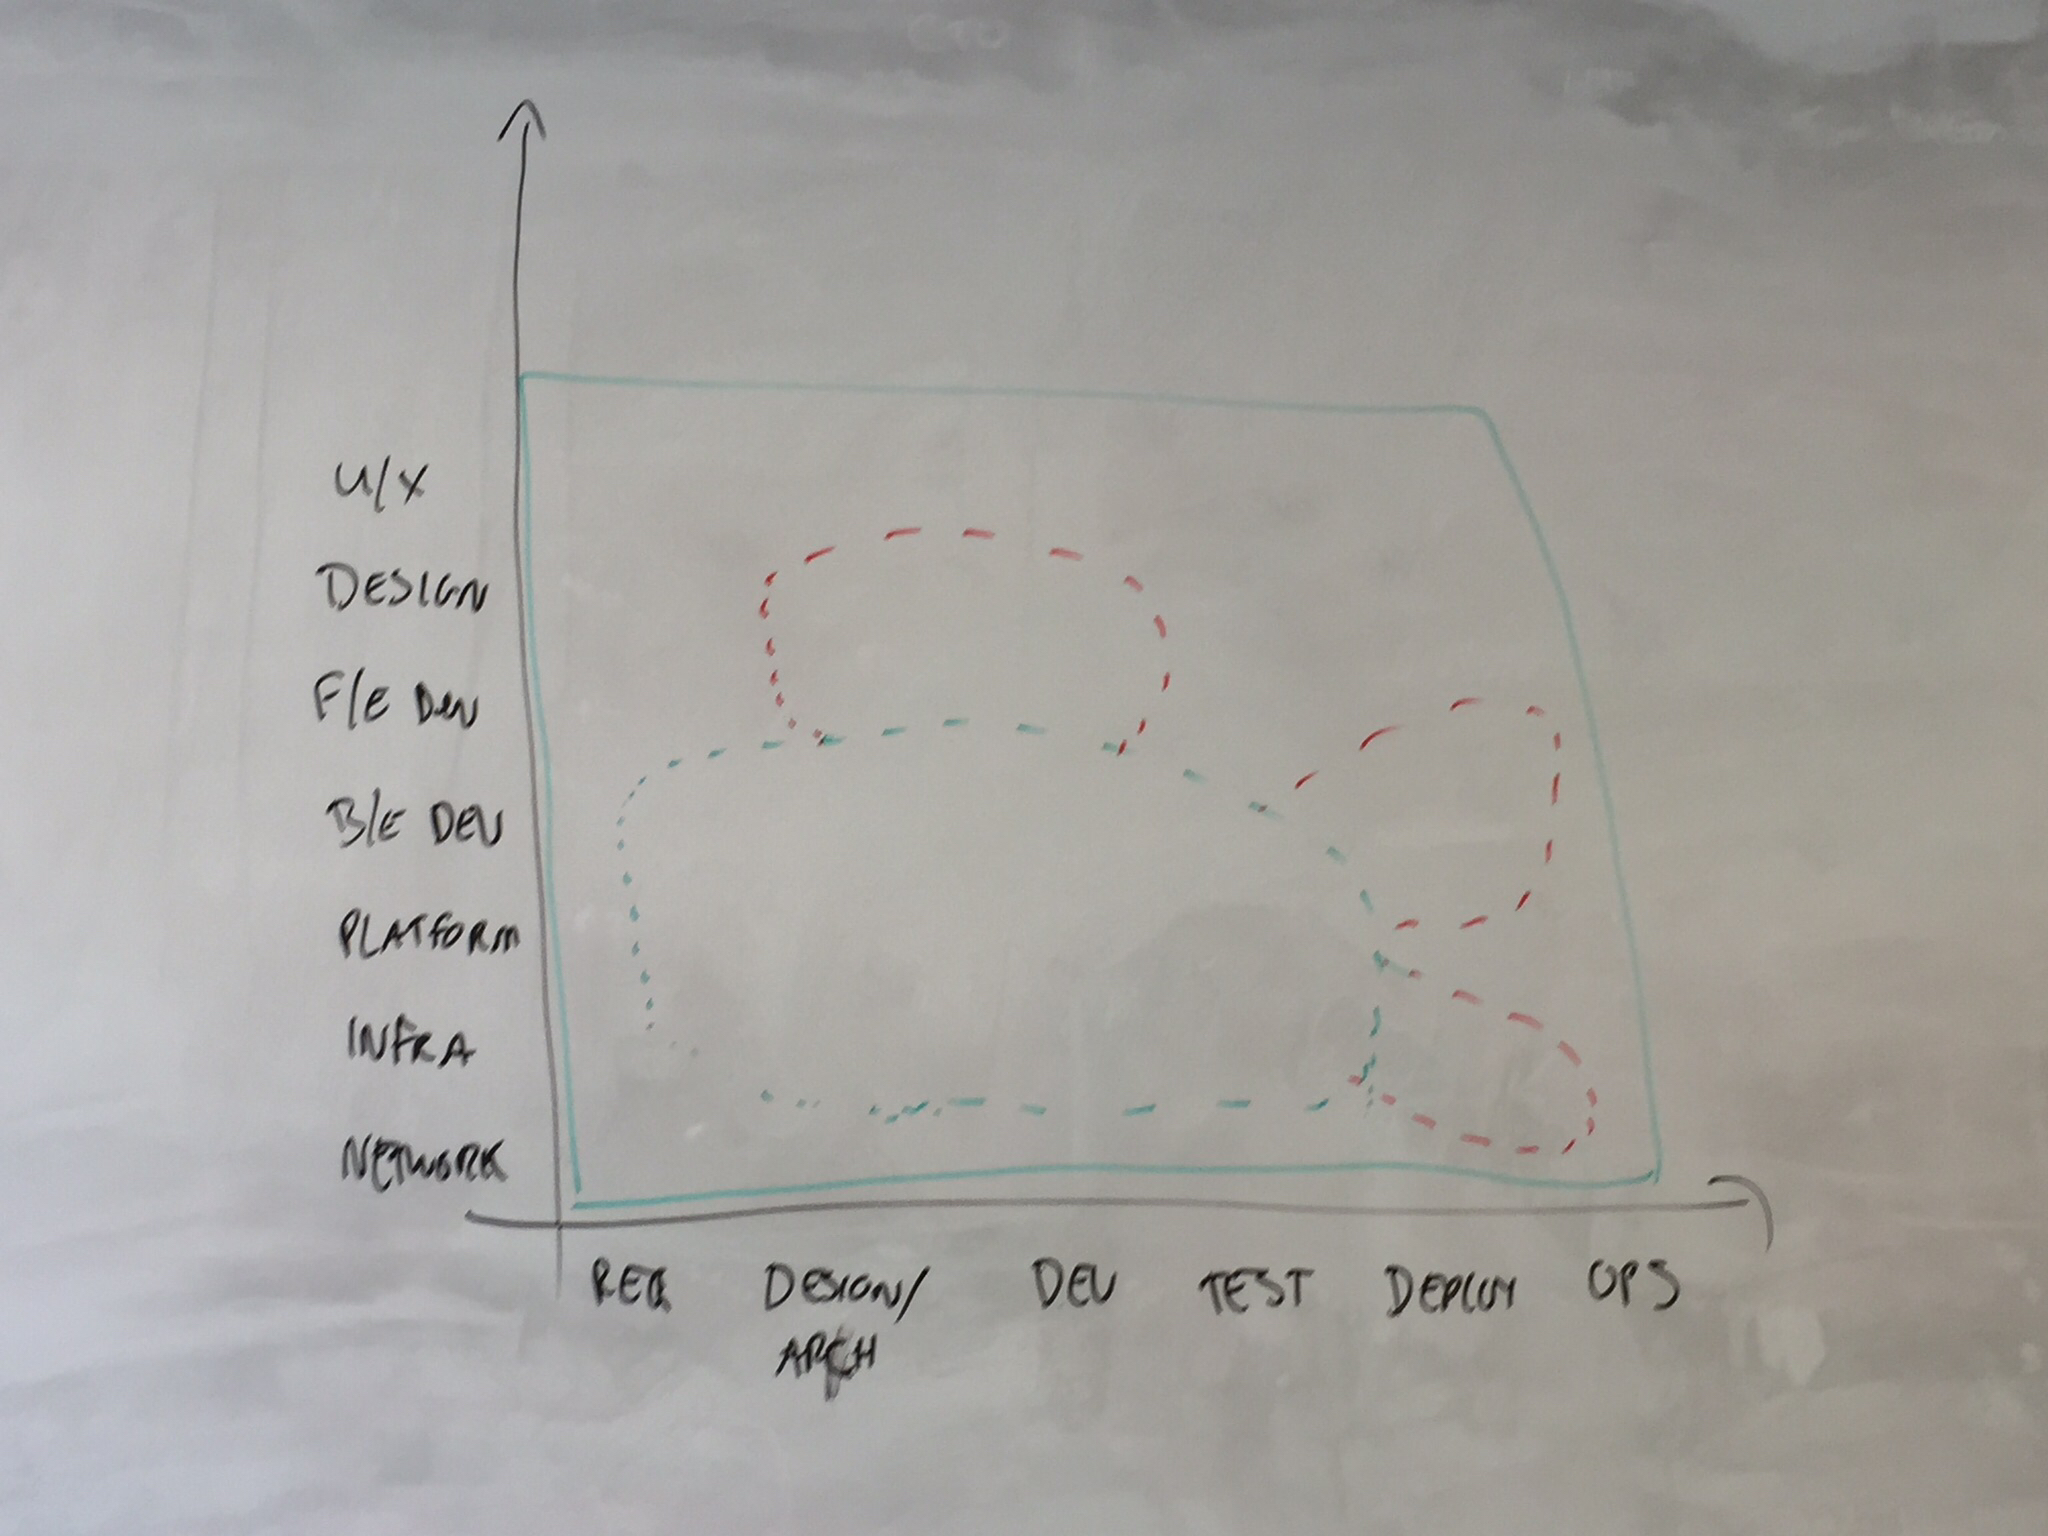 CTO
U/X
DESIGN
F/E Dev
B/E DEV
PLATFORM
INFRA
NETWORK
REQ DESIGN/ DEV TEST DEPLOY OPS
ARCH